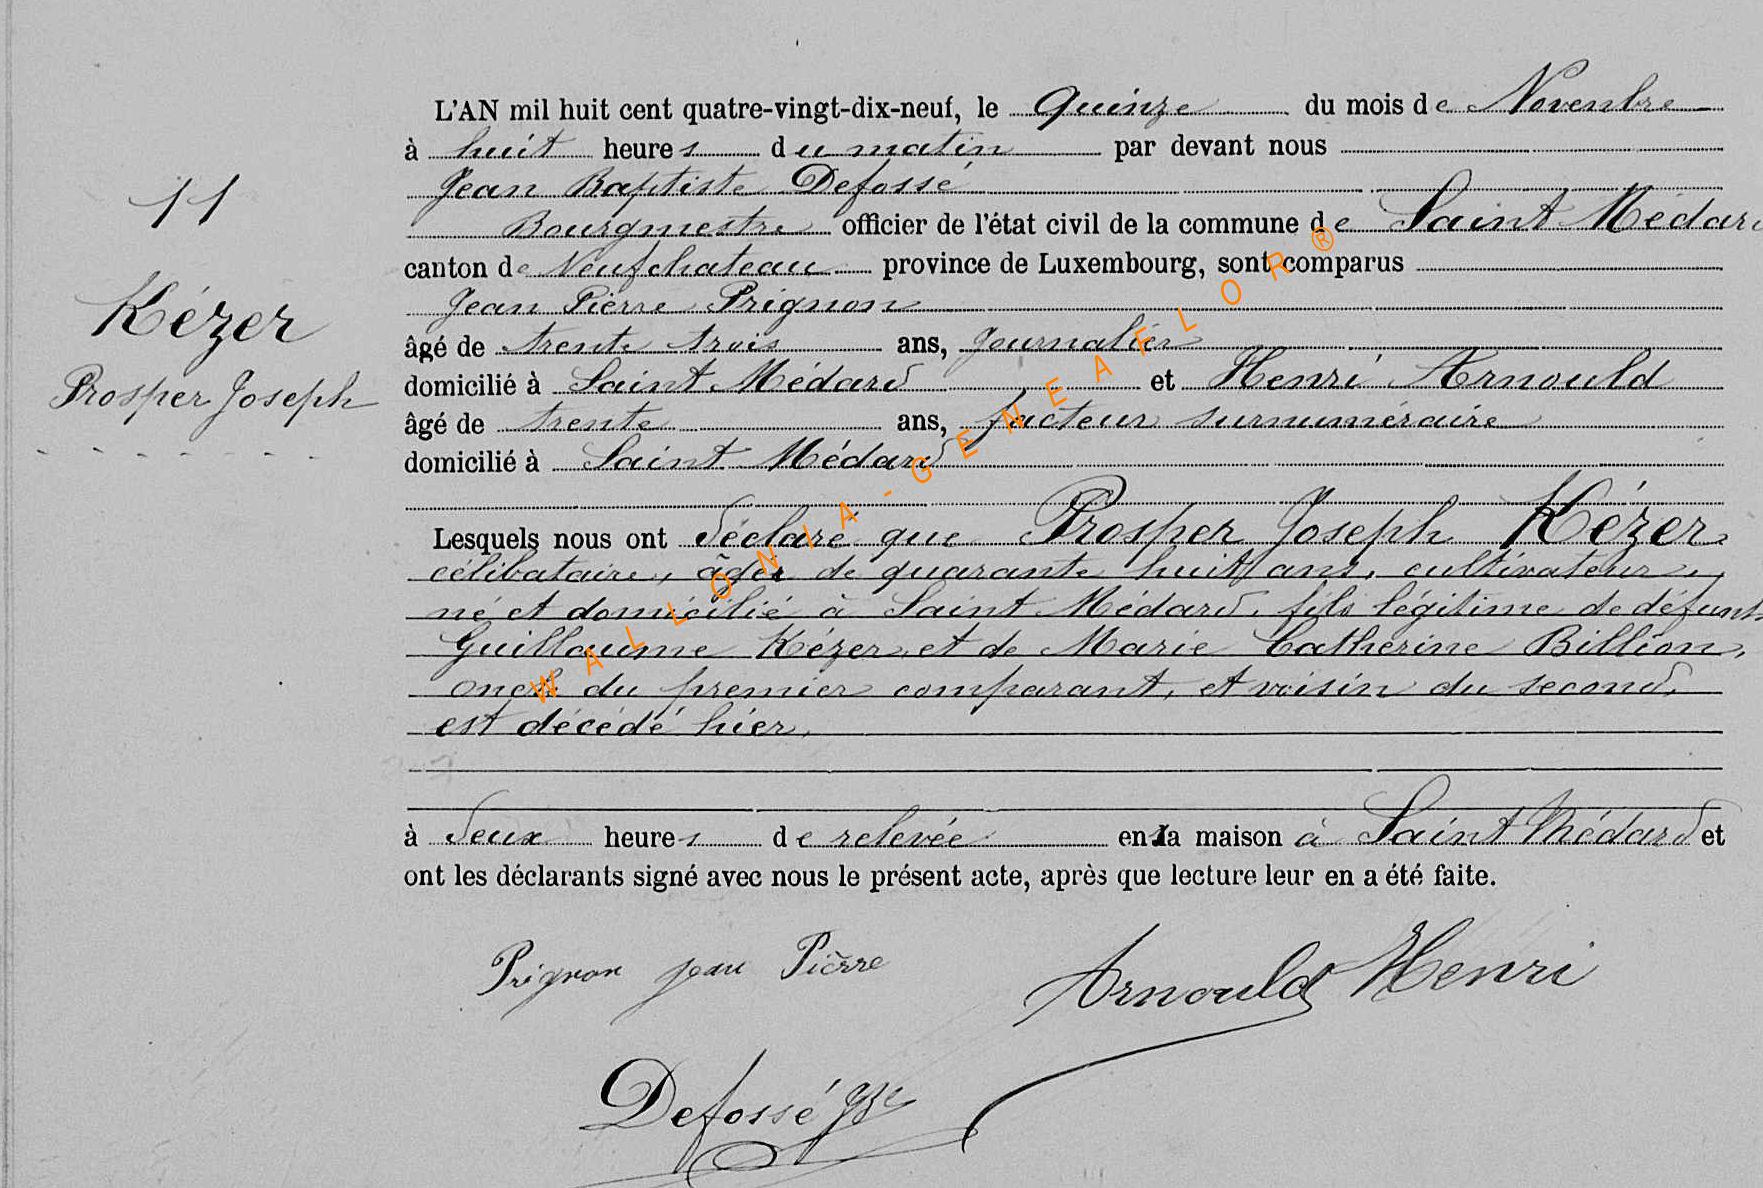 11
Kézer
Prosper Joseph
L'AN mil huit cent quatre-vingt-dix-neuf, le Quinze du mois de Novembre
à huit heures du matin par devant nous
Jean Baptiste Defossé
Bourgmestre officier de l'état civil de la commune de Saint Médard
canton de Neufchateau province de Luxembourg, sont comparus
Jean Pierre Prignon
âgé de trente trois ans, journalier
domicilié à Saint Médard et Henri Arnould
âgé de trente ans, facteur surnuméraire
domicilié à Saint Médard
Lesquels nous ont déclaré que Prosper Joseph Kézer,
célibataire, âgé de quarante huit ans, cultivateur,
né et domicilié à Saint Médard, fils légitime de défunts
Guillaume Kézer et de Marie Catherine Billion,
oncle du premier comparant, et voisin du second,
est décédé hier,
à deux heures de relevée en la maison à Saint Médard et
ont les déclarants signé avec nous le présent acte, après que lecture leur en a été faite.
Prignon jean Pierre Arnould Henri
Defossé
WALLONIA-GENEAFLOR®